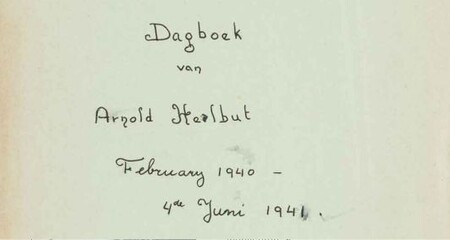 Dagboek
van
Arnold Heslbut
February 1940 -
4de Juni 1941.